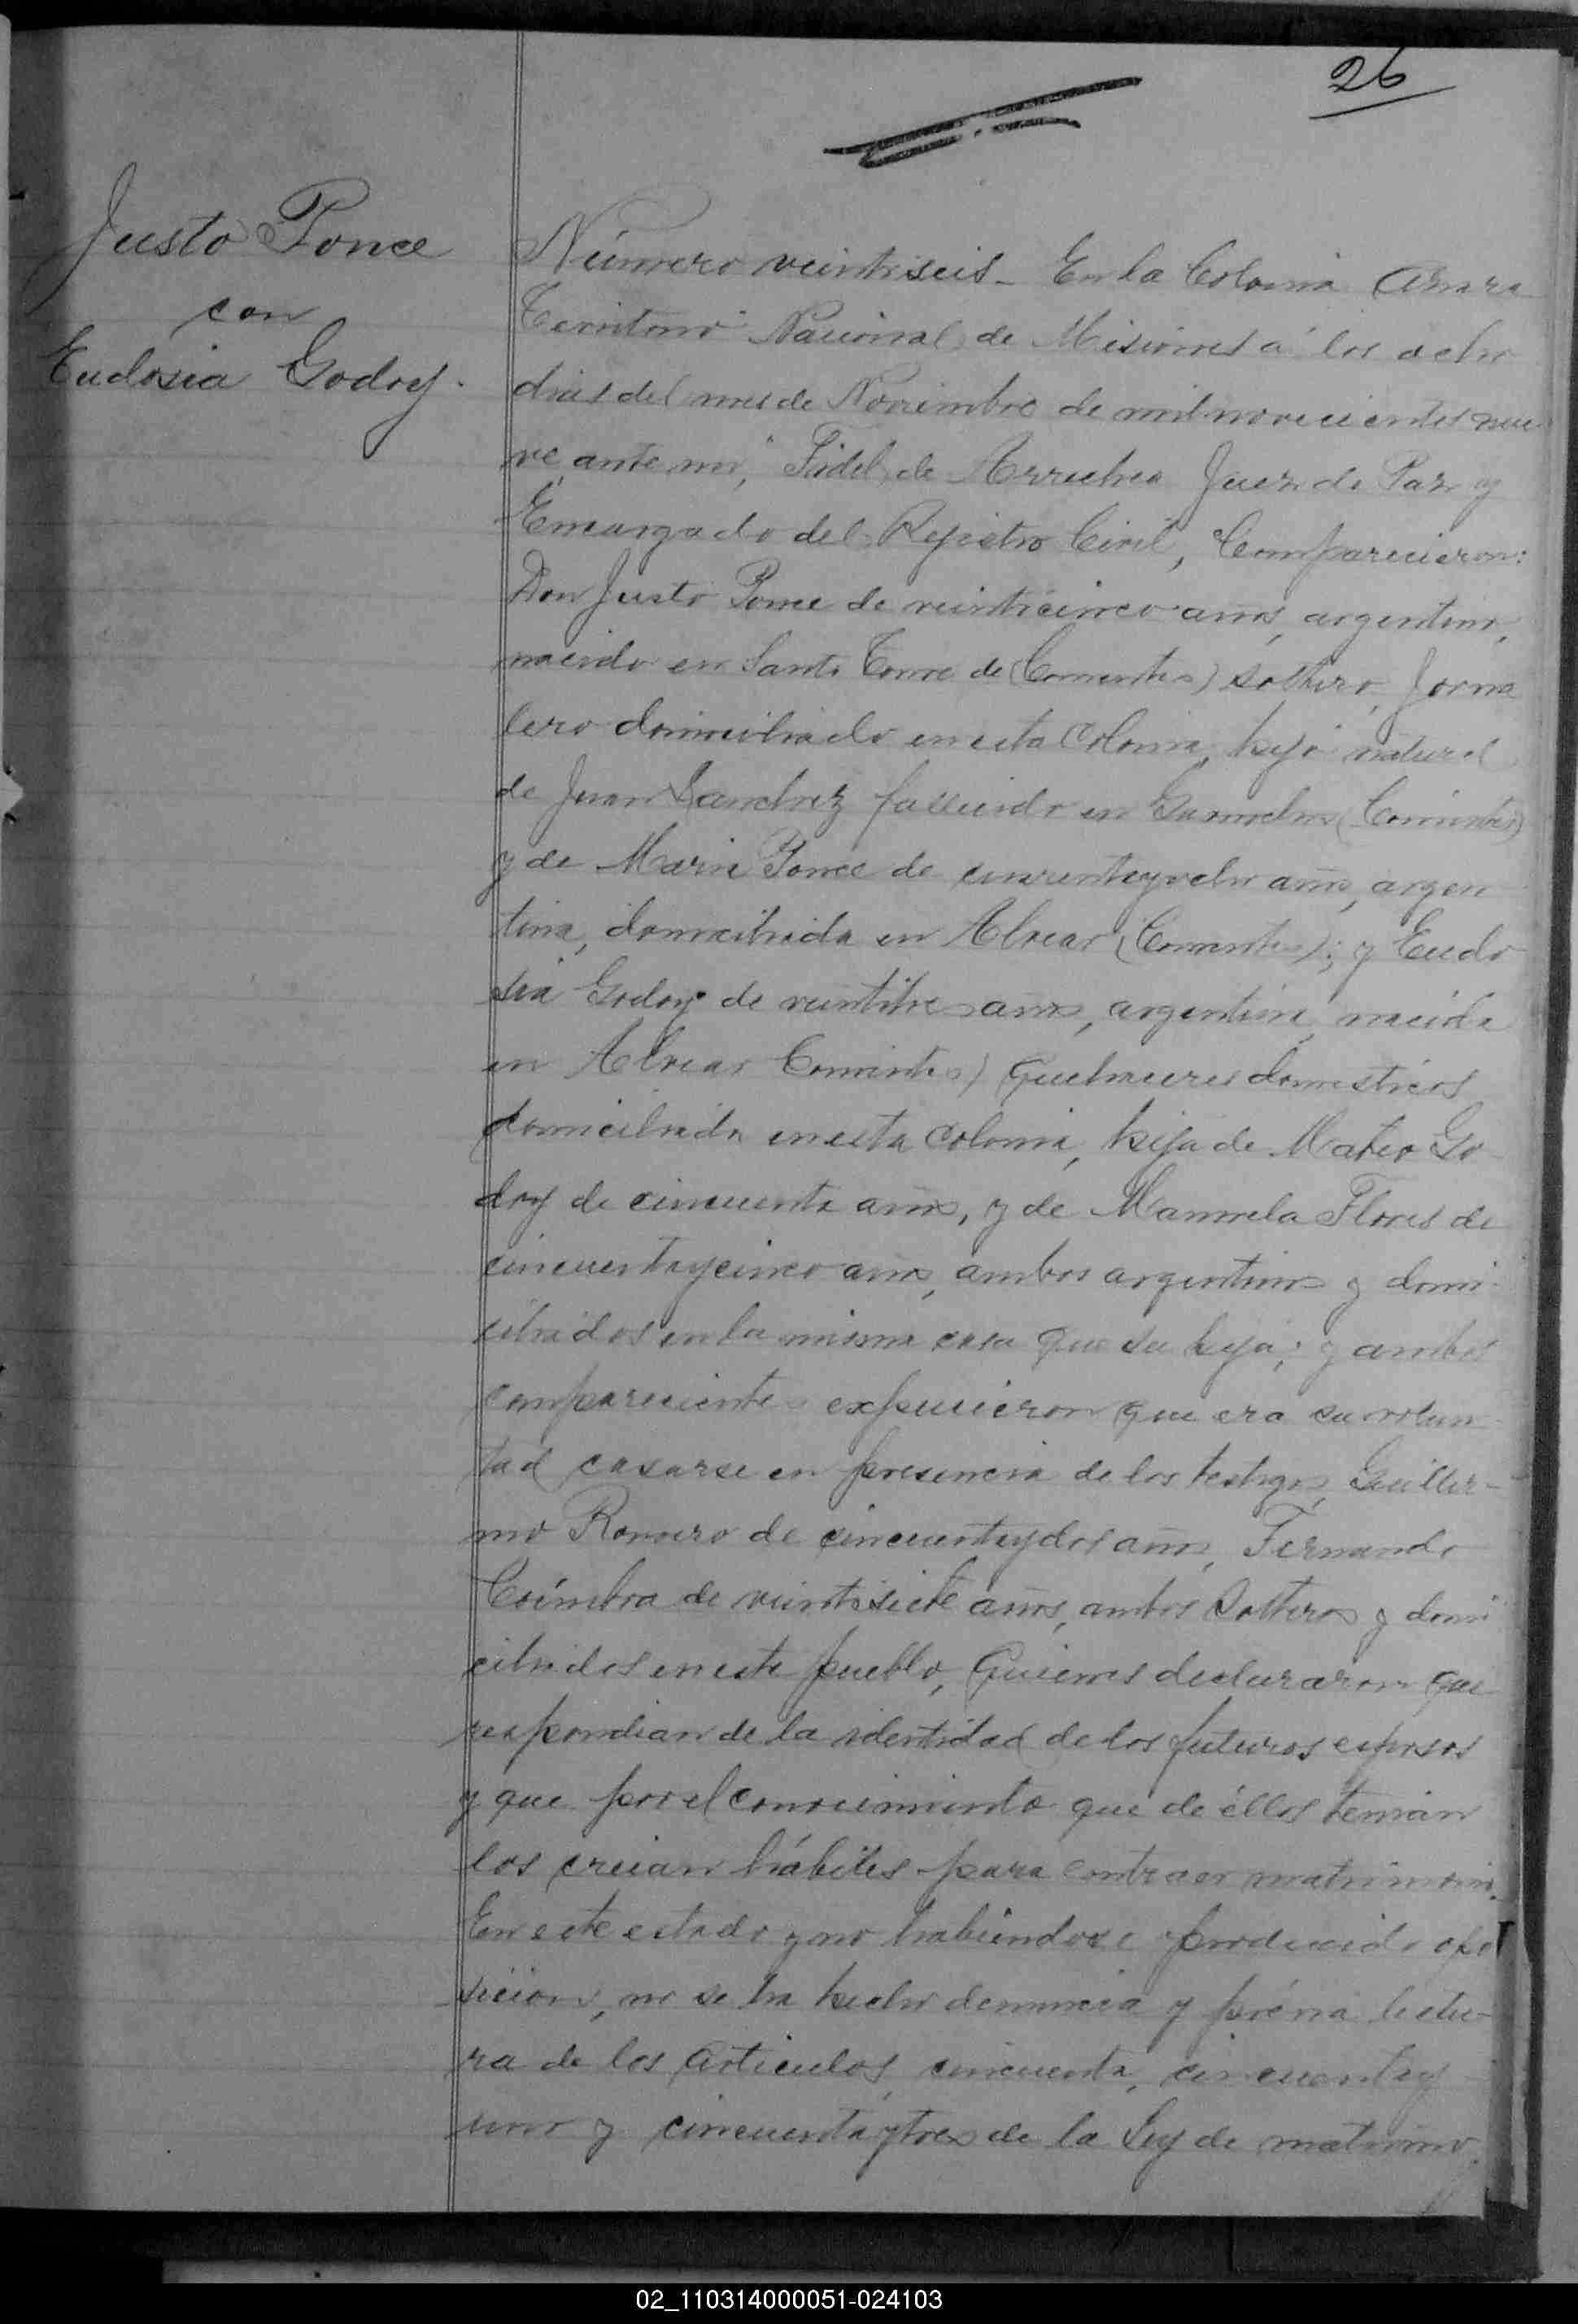 26
Justo Ponce
con
Eudosia Godoy.
Número veintiseis_ En la Colonia Azara
Territorio Nacional de Misiones á los ocho
dias del mes de Noviembre de mil novecientos nue
ve, ante mi, Fidel de Arrechea Juez de Paz y
Encargado del Registro Civil, Comparecieron:
Don Justo Ponce de veinticinco años, argentino,
nacido en Santo Tomé de (Corrientes) soltero, Jorna
lero domiciliado en esta Colonia, hijo natural
de Juan Sanchez fallecido en (Corrientes)
y de Maria Ponce de cuarentayocho años, argen
tina, domiciliada en Alvear (Corrientes); y Eudo
sia Godoy de veintitres años, argentina, nacida
en Alvear Corrientes) Quehaceres domesticos
domiciliada en esta Colonia, hija de Mateo Go
doy de cincuenta años, y de Manuela Flores de
cincuentaycinco años, ambos argentinos y domi
ciliados en la misma casa que su hija; y ambos
comparecientes expucieron que era su volun
tad casarse en presencia de los testigos, Guiller-
mo Romero de cincuentaydos años, Fernando
Coímbra de veintisiete años, ambos Solteros y domi
ciliados en este pueblo, Quienes declararon que
respondian de la identidad de los futuros esposos
y que por el conocimiento que de éllos tenian
los creian hábiles para contraer matrimonio.
En este estado y no habiendose producido opo
sicion, no se ha hecho denuncia y prévia lectu-
ra de los Articulos, cincuenta, cincuentay
uno y cincuentaytres de la Ley de matrimo
02_110314000051-024103